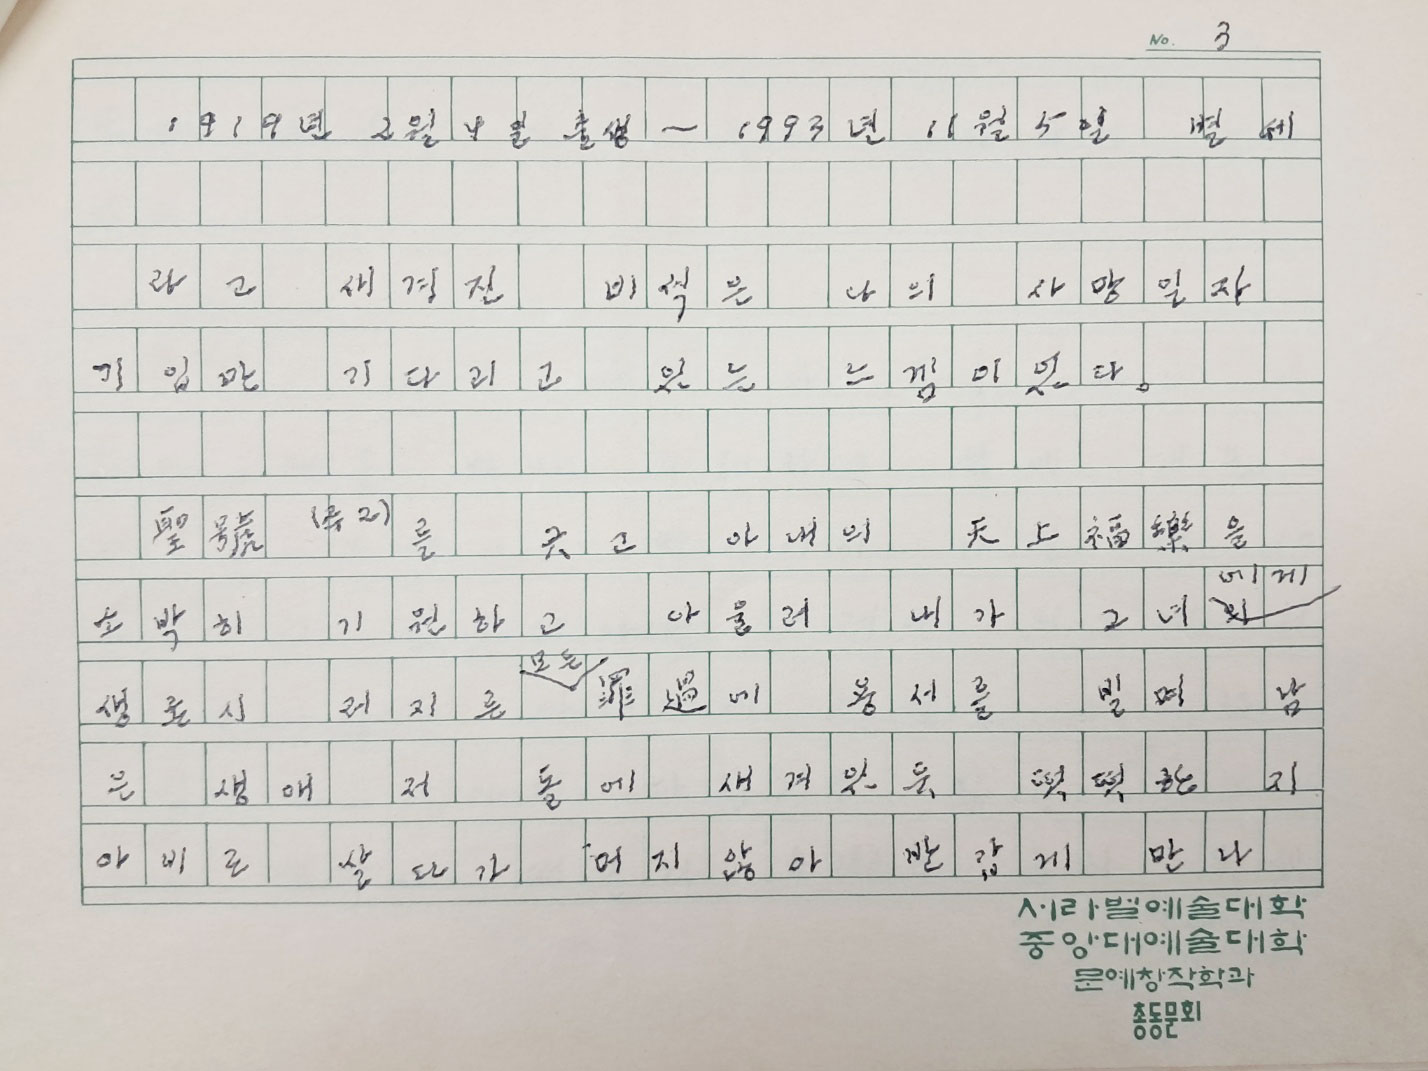 No. 3
1919년 2월 4일 출생 ~ 1993년 11월 5일 별세
라고 새겨진 비석은 나의 사망일자
기입만 기다리고 있는 느낌이었다.
聖號(후고)를 긋고 아내의 天上福樂을
소박히 기원하고 아울러 내가 그녀에게
생존시 저지른 모든 罪過에 용서를 빌며 남
은 생애 저 돌에 새겨있듯 떳떳한 지
아비로 살다가 머지않아 반갑게 만나
서라벌예술대학
중앙대예술대학
문예창작학과
총동문회